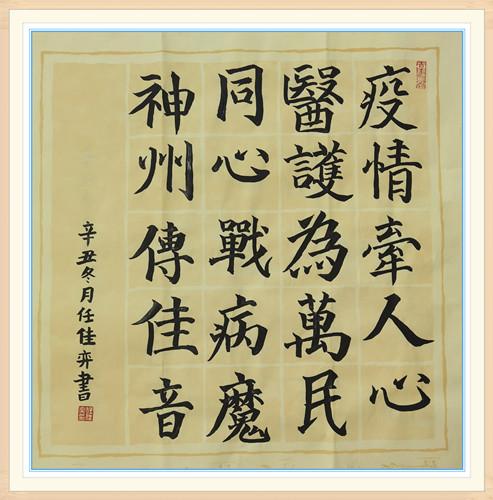 疫情牽人心
醫護為萬民
同心戰病魔
神州傳佳音
辛丑冬月任佳弈書